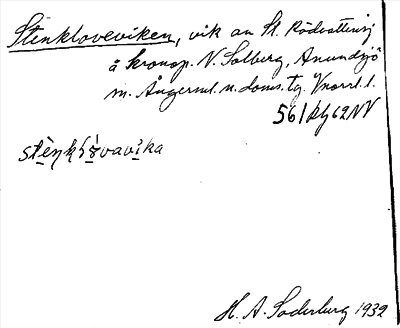 Stenkloveviken, vik av St. Rödvattensj
å kronop. N. Solberg, Anundsjö
m. Ångerml. n. doms. tg. Vnorrl. l.
56 I hj 62 NV
stènkʃɤ̀vavìka
H. A. Söderberg 1932